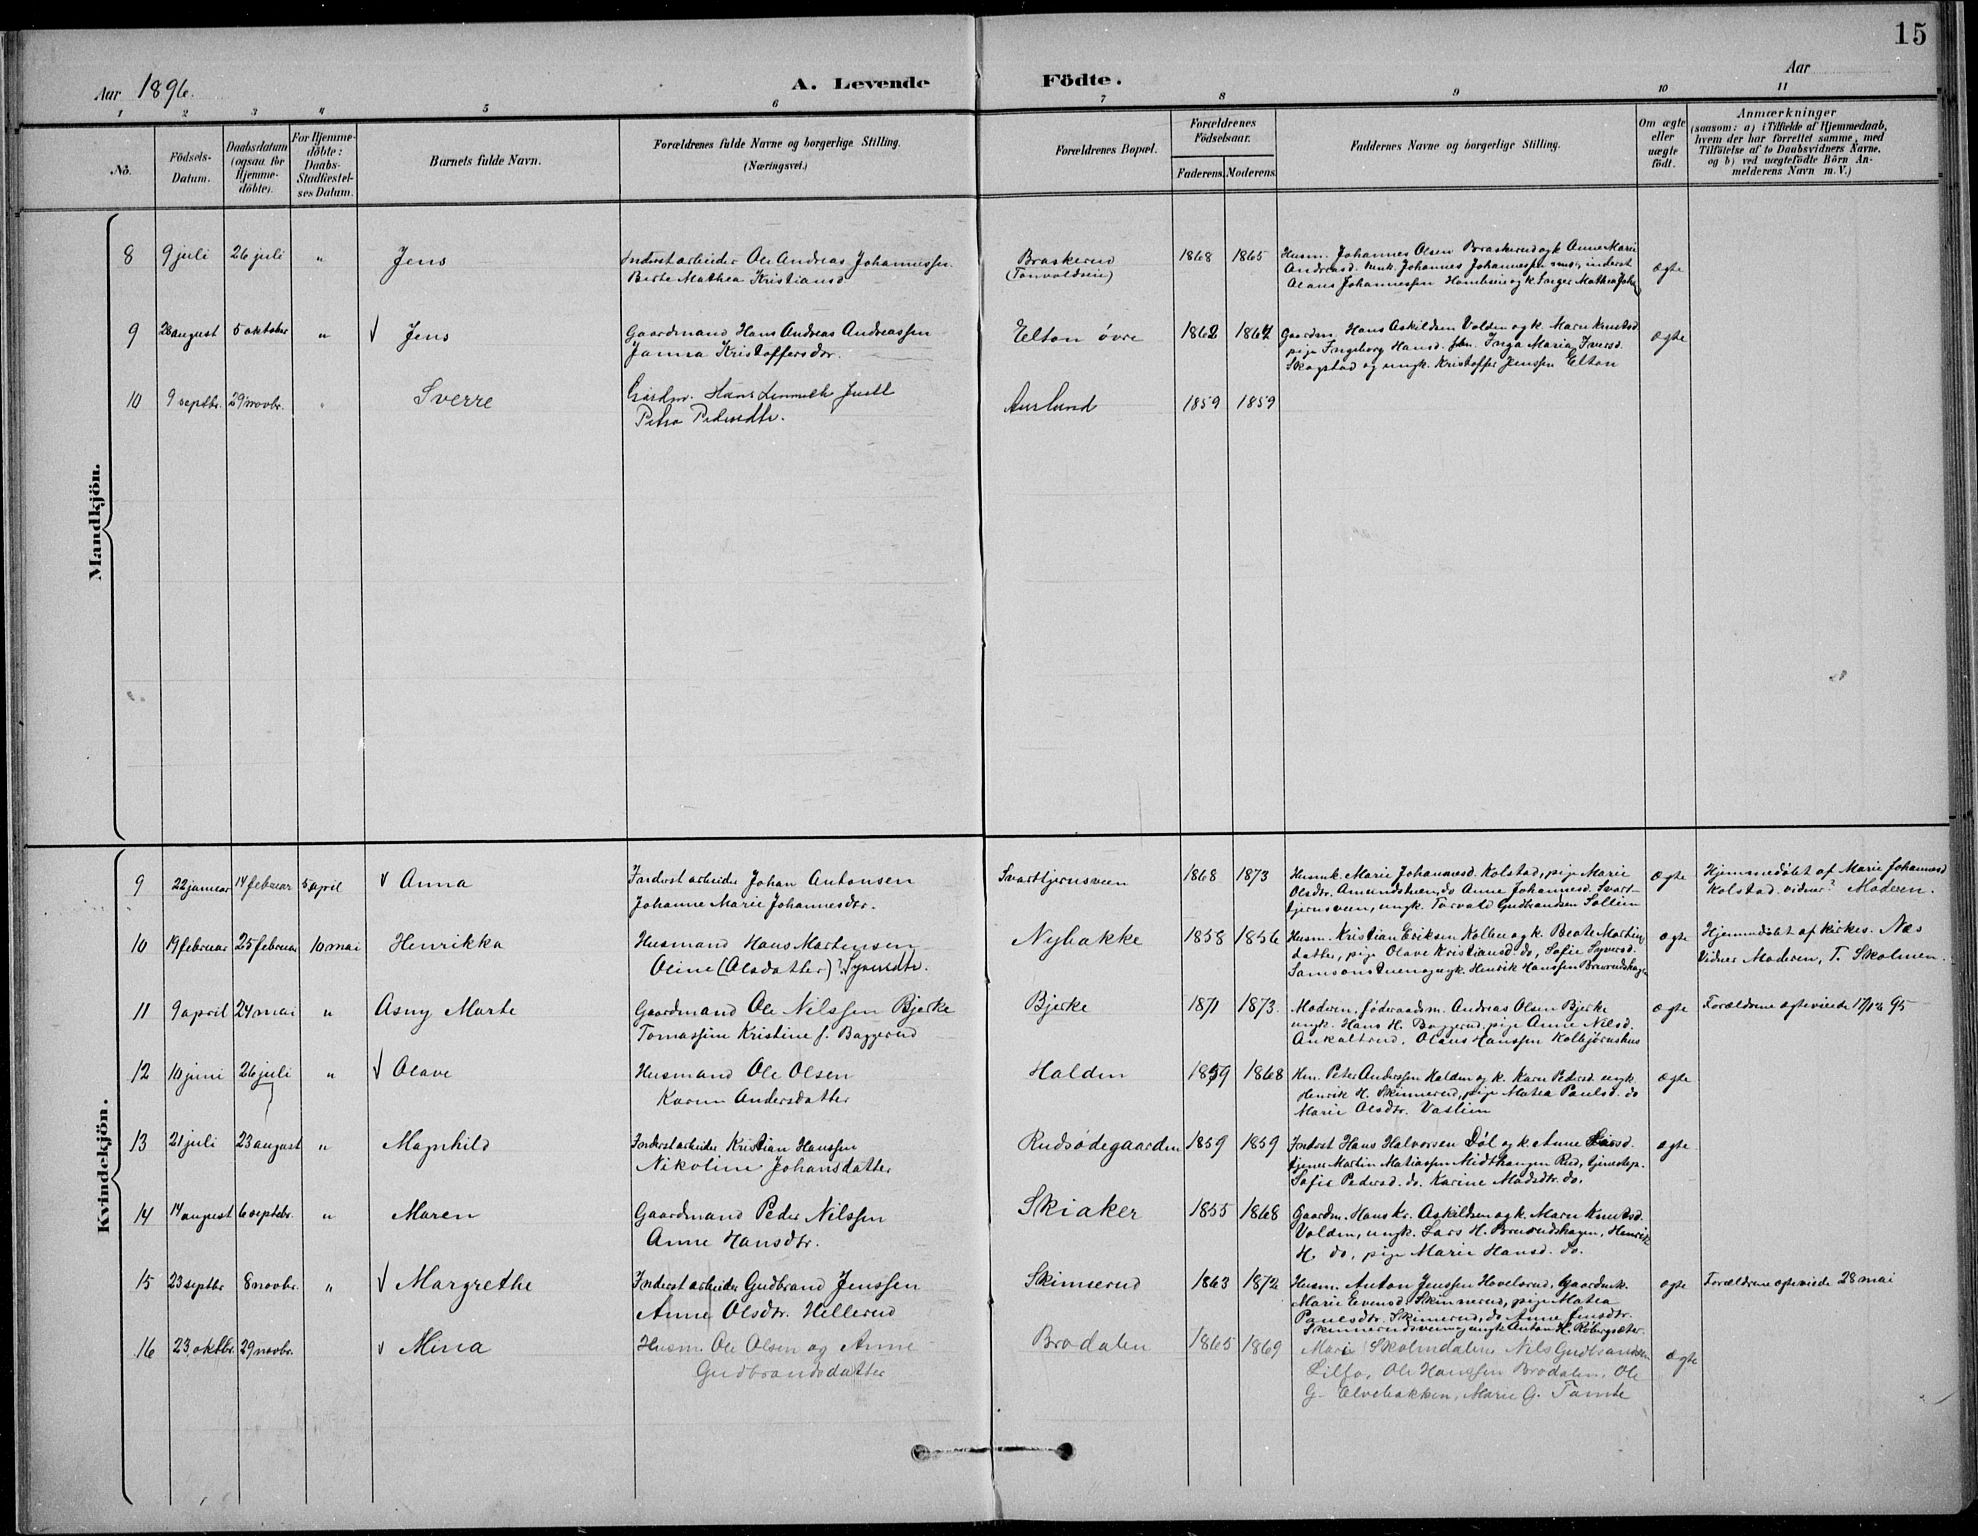 15
Aar 1896. A. Levende Födte. Aar
1 2 3 4 5 6 7 8 9 10 11
No. Födsels-Datum. Daabsdatum (ogsaa for Hjemme-döbte). For Hjemme-döbte: Daabs-Stadfæstel-ses Datum. Barnets fulde Navn. Forældrenes fulde Navne og borgerlige Stilling. (Næringsvei.) Forældrenes Bopæl. Forældrenes Födselsaar. Faderens. Moderens. Faddernes Navne og borgerlige Stilling. Om ægte eller uægte födt. Anmærkninger (saasom: a) i Tilfælde af Hjemmedaab, hvem der har forrettet samme, med Tilföielse af to Daabsvidners Navne, og b) ved uægtefödte Börn Anmelderens Navn m. V.)
Mandkjön.
8 9 juli 26 juli " Jens Inderst arbeider Ole Andreas Johannessen Braskerud 1868 1865 Husm. Johannes Olsen Braskerud og k. Anne Marie
Berte Mathea Kristiansd (Tonvoldseie) Andreasd. Johannes Johannessen inderst ægte
Olaus Johannessen og k. Inger Mathea
9 28 august 5 oktober " √ Jens Gaardmand Hans Andreas Andreassen Elton øvre 1862 1867 Gaardm. Hans Askildsen Volden og k. Maren Knutsd ægte
Janna Kristoffersdtr. pige Ingeborg Hansd. Inga Maria Iversd.
Skogstad og ungk. Kristoffer Jenssen Elton
10 9 septbr. 29 novbr. Sverre Gårdm. Hans Juell Aurlund 1859 1859
Petra Pedersdtr.
Kvindekjön.
9 22 januar 14 februar 5 april √ Anna Inderst arbeider Johan Antonsen Svarttjernsveen 1868 1873 Husmk. Marie Johannesd. Kolstad, pige Marie ægte Hjemmedøbt af Marie Johannesd
Johanne Marie Johannesdtr. Olsdtr. Amundsveen, do Anne Johannesd. Svart- Kolstad. vidner? Moderen.
tjernsveen, ungk. Torvald Gudbrandsen Solliem
10 19 februar 25 februar 10 mai Henrikka Husmand Hans Martensen Nybakke 1858 1856 Husm. Kristian Eriksen Kolbu og k. Beate Martins- ægte Hjemmedøbt af kirkes. Næs
Oline (Olsdatter)? Syversdtr. datter, pige Olave Kristiansd. do, Sofie Syversd. Vidner Moderen, T. Skolmen.
Samsonstuen og ungk. Henrik Hanssen
11 9 april 24 mai " Asny Marte Gaardmand Ole Nilssen Bjerke Bjerke 1871 1873. Moderen, føderaadsm. Andreas Olsen Bjerke ægte Forældrene ægteviede 17/12 95
Tomassine Kristine f. Baggerud ungk. Hans H. Baggerud, pige Anne Nilsd.
Ankaltrud, Olaus Hanssen Kolbjørnshus
12 10 juni 26 juli " √ Olave Husmand Ole Olsen Halden 1859 1868 Hm. Peter Anderssen Halden og k. Karen Pedersd. ungk. ægte
Karen Andersdatter Henrik H. Skinnerud, pige Matea Paulsd. do
Marie Olsdtr. Vaslien
13 21 juli 23 august " Magnhild Inderst arbeider Kristian Hanssen Rudsødegaarden 1859 1859 Inderst Hans Halvorsen Døl og k. Anne Larsd. ægte
Nikoline Johansdatter tjener Martin Matiassen Midthaugen Rud, tjenestep.
Sofie Pedersd. do. Karine Madsdtr. do.
14 14 august 6 septbr. " Maren Gaardmand Peder Nilssen Skiaker 1855 1868 Gaardm. Hans Kr. Askildsen og k. Maren Knutsd.
Anne Hansdtr. Volden, ungk. Lars H. Brenrudshagen, Henrik
H. do, pige Marie Hansd. do.
15 23 septbr 8 novbr. " √ Margrethe Inderst arbeider Gudbrand Jenssen Skinnerud 1863 1872 Husm. Anton Jenssen Hovelsrud, Gaardmk. ægte Forældrene ægteviede 28 mai
Anne Olsdtr. Hellerud Marie Evensd. Skinnerud, pige Matea
Paulsdtr. Skinnerud, do Anne Jensdtr.
Skinnerudsveen og ungk Anton H. Røbergsæter
16 23. oktbr. 29 novbr. √ Mina Husm. Ole Olsen og Anne Brodalen 1865 1869 Marie Skolmdalen Nils Gudbrandsen ægte
Gudbrandsdatter Lillo, Ole Hanssen Brodalen, Ole
G. Elvebakken, Marie G. Tomte